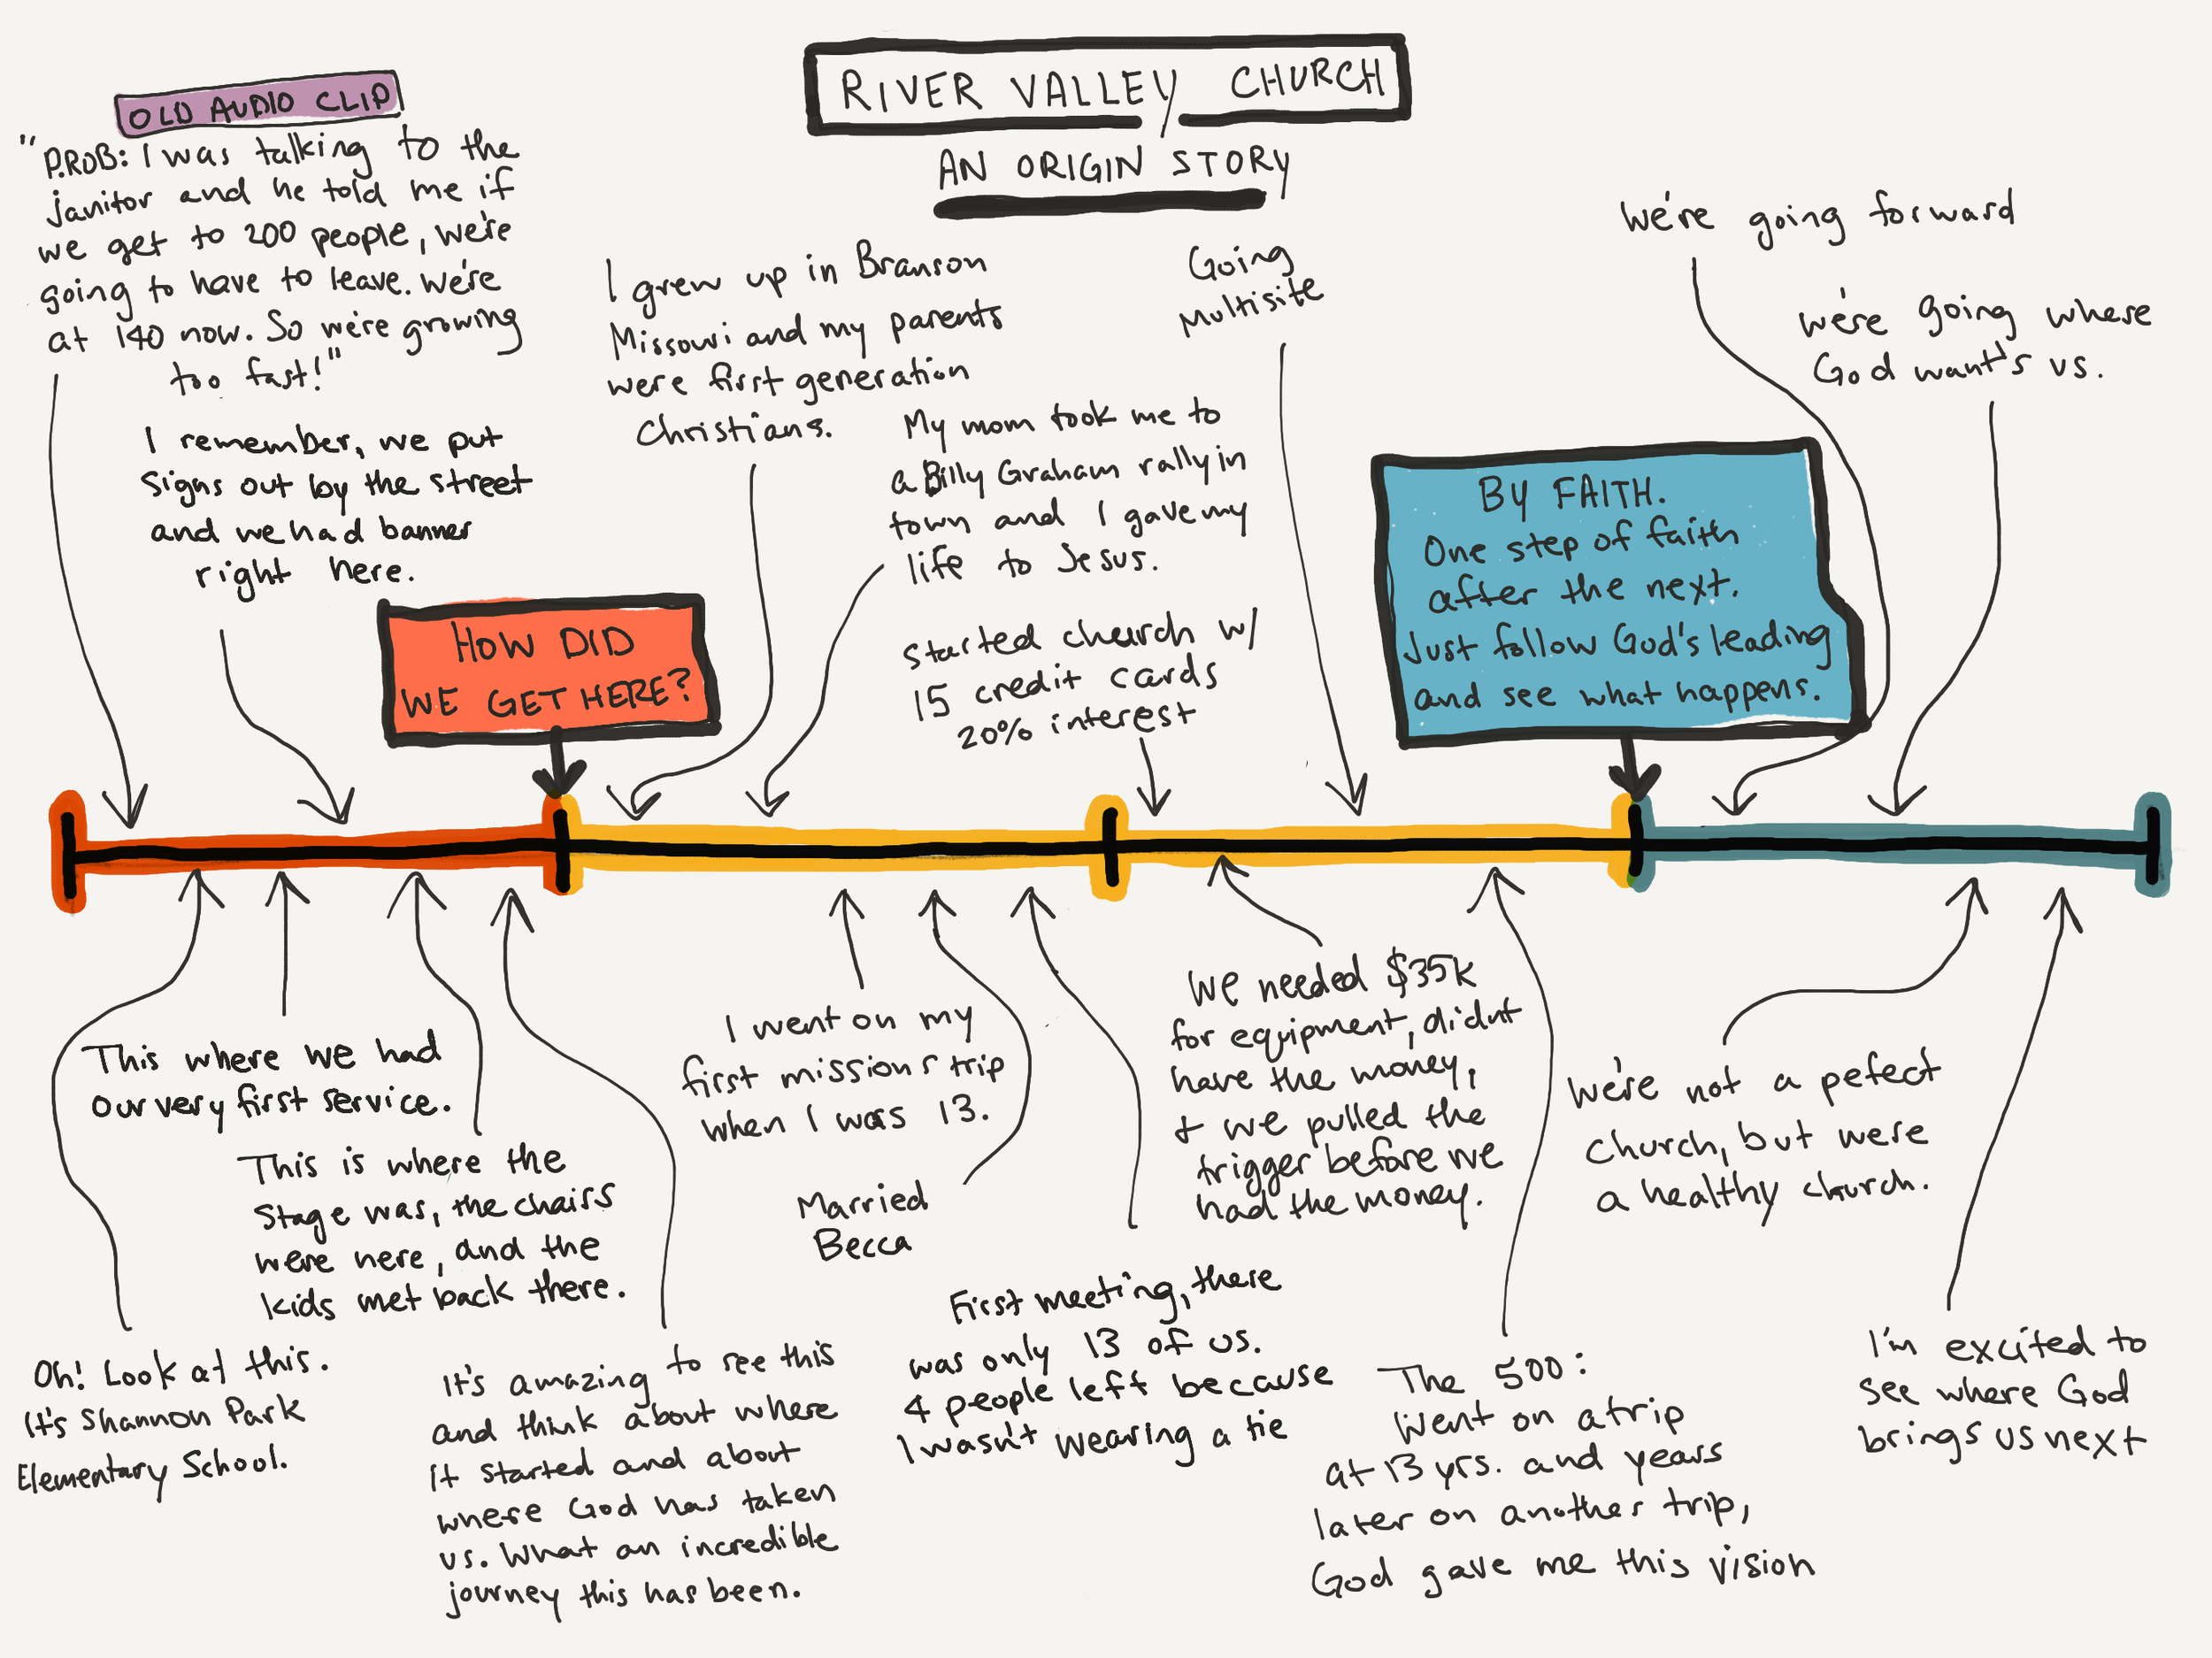 RIVER VALLEY CHURCH
AN ORIGIN STORY
OLD AUDIO CLIP
"P.ROB: I was talking to the
janitor and he told me if
we get to 200 people, we're
going to have to leave. We're
at 140 now. So we're growing
too fast!"
I remember, we put
signs out by the street
and we had banner
right here.
HOW DID
WE GET HERE?
I grew up in Branson
Missouri and my parents
were first generation
Christians.
My mom took me to
a Billy Graham rally in
town and I gave my
life to Jesus.
Started church w/
15 credit cards
20% interest
Going
Multisite
BY FAITH.
One step of faith
after the next.
Just follow God's leading
and see what happens.
We're going forward
We're going where
God want's us.
Oh! Look at this.
It's Shannon Park
Elementary School.
This where we had
our very first service.
This is where the
stage was, the chairs
were here, and the
kids met back there.
It's amazing to see this
and think about where
it started and about
where God has taken
us. What an incredible
journey this has been.
I went on my
first missions trip
when I was 13.
Married
Becca
First meeting, there
was only 13 of us.
4 people left because
I wasn't wearing a tie
We needed $35k
for equipment, didnt
have the money,
+ we pulled the
trigger before we
had the money.
The 500:
Went on a trip
at 13 yrs. and years
later on another trip,
God gave me this vision
We're not a pefect
church, but were
a healthy church.
I'm excited to
see where God
brings us next